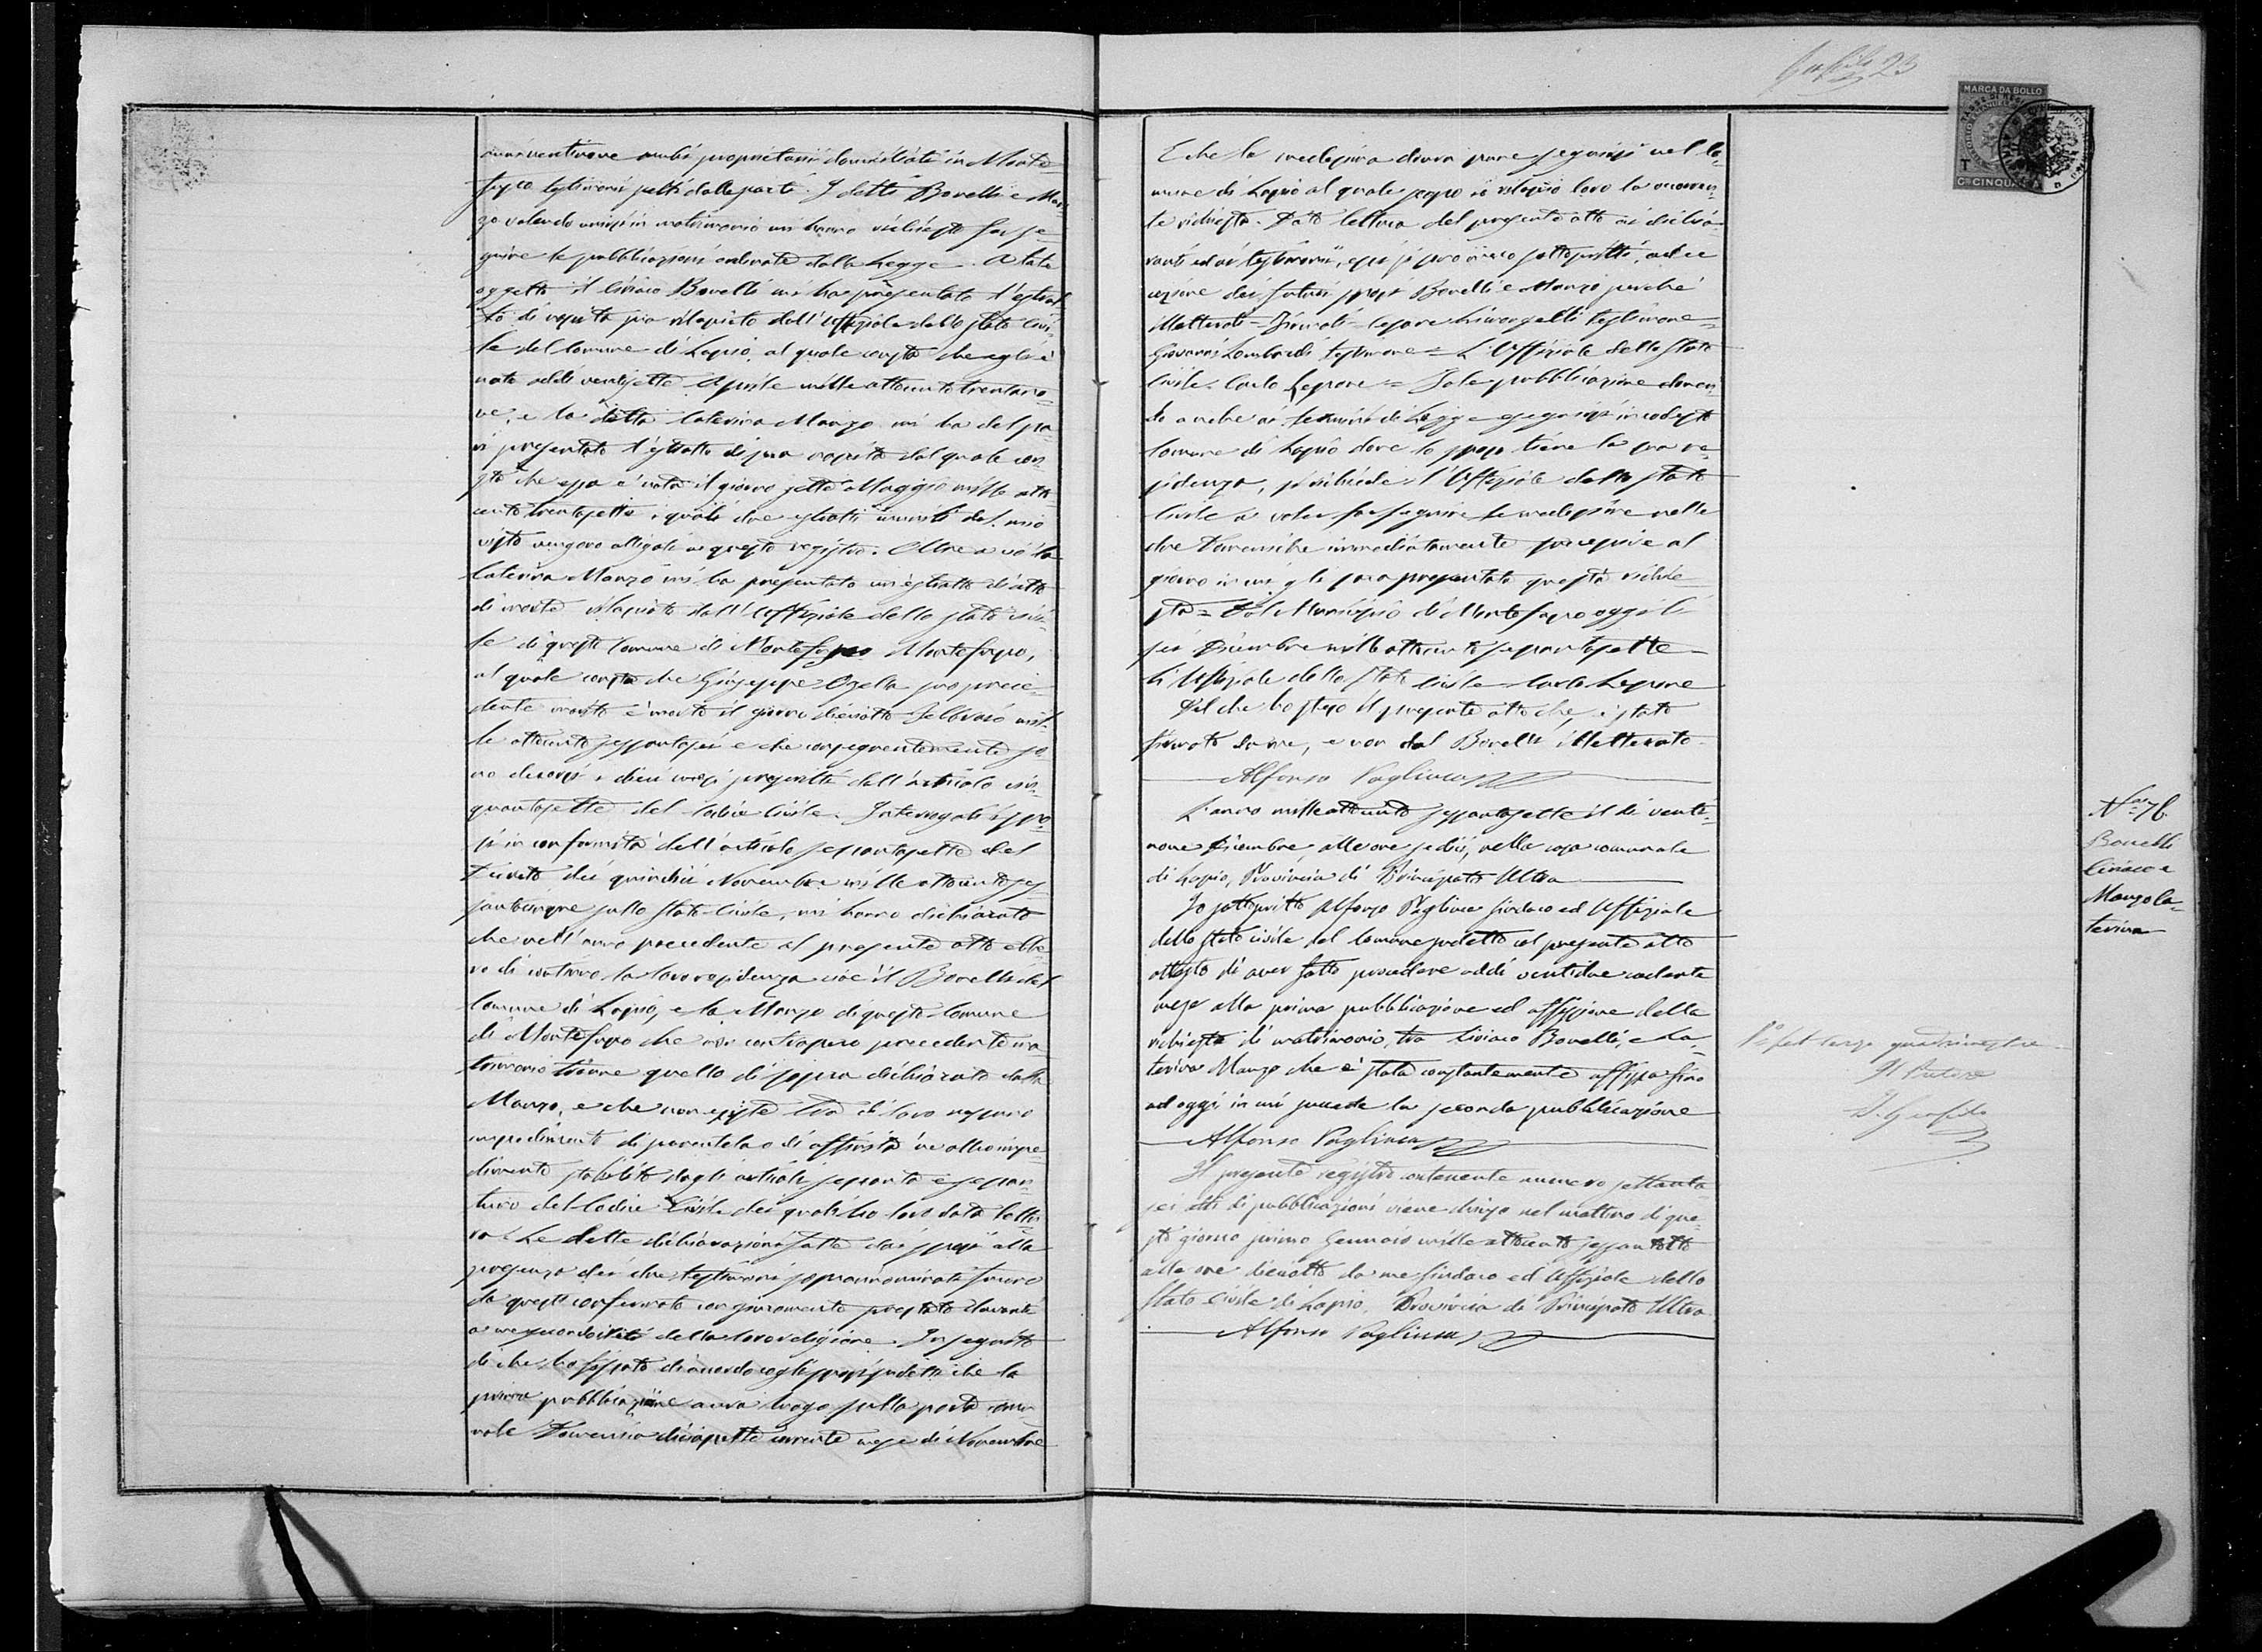 anni ventinove ambi proprietarii domiciliati in Monte-
fusco testimoni scelti dalle parti. I detti Bonelli e Man-
zo volendo unirsi in matrimonio mi hanno richiesto far se-
guire le pubblicazioni ordinate dalla Legge. A tale
oggetto il Ciriaco Bonelli mi ha presentato l'estrat-
to di nascita sua rilasciato dall'Uffiziale dello Stato Civi-
le del Comune di Lapio al quale consta che egli è
nato addi ventisette Aprile mille ottocento trentano-
ve, e la detta Caterina Manzo mi ha del pa-
ri presentato l'estratto di sua nascita dal quale con-
sta che essa è nata il giorno sette Maggio mille otto
cento trentasette i quali due estratti muniti del mio
visto vengono alligati a questo registro. Oltre a ciò la
Caterina Manzo mi ha presentato un estratto di atto
di morte rilasciato dall'Uffiziale dello Stato civi-
le di questo Comune di Montefusco Montefusco,
al quale consta che Giuseppe Ozella suo prece-
dente marito è morto il giorno dieciotto Febbraio mil-
le ottocento sessantasei e che conseguentemente so-
no decorsi i dieci mesi prescritti dall'articolo cin-
quantasette del Codice Civile. Interrogati i spo-
si in conformità dell'articolo sessantasette del
Decreto dei quindici Novembre mille ottocento ses-
santacinque sullo Stato Civile, mi hanno dichiarato
che nell'anno precedente al presente atto ebbe-
ro di continuo la loro residenza cioè il Bonelli nel
Comune di Lapio, e la Manzo di questo Comune
di Montefusco che non contrassero precedente ma-
trimonio tranne quello di sopra dichiarato dalla
Manzo, e che non esiste tra di loro nessuno
impedimento di parentela o di affinità né altro impe-
dimento stabilito dagli articoli sessanta e sessan-
tuno del Codice Civile dei quali ho loro dato lettu-
ra. Le dette dichiarazioni fatte dai sposi alla
presenza dei due testimoni sopranominati furono
da questi confermate con giuramento prestato davanti
a me secondo i riti della loro religione. In seguito
di che ho fissato di accordo cogli sposi sudetti che la
prima pubblicazione avrà luogo sulla porta comu-
nale Domenica diciasette corrente mese di Novembre
23
MARCA DA BOLLO
E che la medesima dovrà pure seguirsi nel Co-
mune di Lapio al quale scopo io rilascio loro la occorren-
te richiesta. Dato lettura del presente atto ai dichia-
ranti ed ai testimoni, essi si sono meco sottoscritti, ad ec-
cezione dei futuri sposi Bonelli e Manzo perché
illetterati = Firmati = testimone =
Giovanni Lombardi testimone = L'Uffiziale dello Stato
Civile Carlo Lepore = Tale pubblicazione doven-
do anche ai termini di Legge eseguirsi in codesto
Comune di Lapio dove lo sposo tiene la sua re-
sidenza, si richiede l'Uffiziale dello Stato
Civile a voler far seguire le medesime nelle
due Domeniche immediatamente successive al
giorno in cui gli sarà presentata questa richie-
sta = Dal Municipio di Montefusco oggi li
sei Dicembre mille ottocento sessantasette
L'Uffiziale dello Stato Civile Carlo Lepore
Del che ho steso il presente atto che è stato
firmato da me, e non dal Bonelli illetterato
Alfonso Pagliuca
L'anno mille ottocento sessantasette il di venti-
nove Dicembre alle ore sedici, nella casa comunale
di Lapio, Provincia di Principato Ultra
Io sottoscritto Alfonso Pagliuca Sindaco ed Uffiziale
dello Stato civile del Comune sudetto col presente atto
attesto di aver fatto procedere addi ventidue cadente
mese alla prima pubblicazione ed affissione della
richiesta di matrimonio, tra Ciriaco Bonelli, e Ca-
terina Manzo che è stata constantemente affissa fino
ad oggi in cui procede la seconda pubblicazione
Alfonso Pagliuca
Il presente registro contenente numero settanta-
sei atti di pubblicazioni viene chiuso nel mattino di que-
sto giorno primo Gennaio mille ottocento sessantotto
alle ore dieciotto da me Sindaco ed Uffiziale dello
Stato Civile di Lapio, Provincia di Principato Ultra
Alfonso Pagliuca
76
Bonelli
Ciriaco e
Manzo Ca-
terina
quadrimestre
Il Pretore